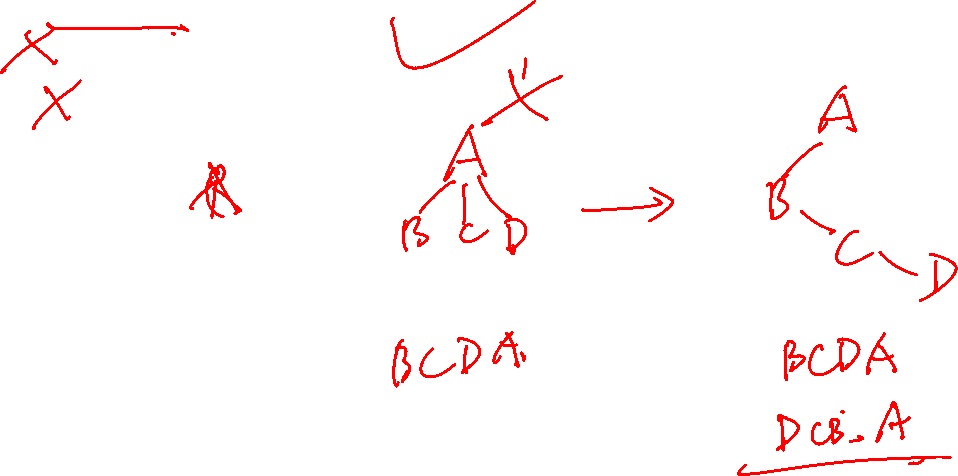 X
X
X
A
A
B C D
B
C
D
BCDA
BCDA
DCB.A